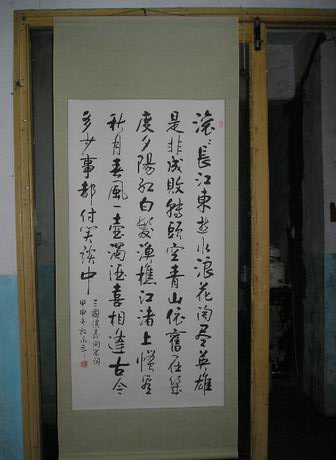 滚長江東逝水浪花淘尽英雄
是非成敗轉頭空青山依舊在幾
度夕陽紅白髮漁樵江渚上慣看
秋月春風一壺濁酒喜相逢古今
多少事都付笑談中
三國演義開篇詞
甲申冬